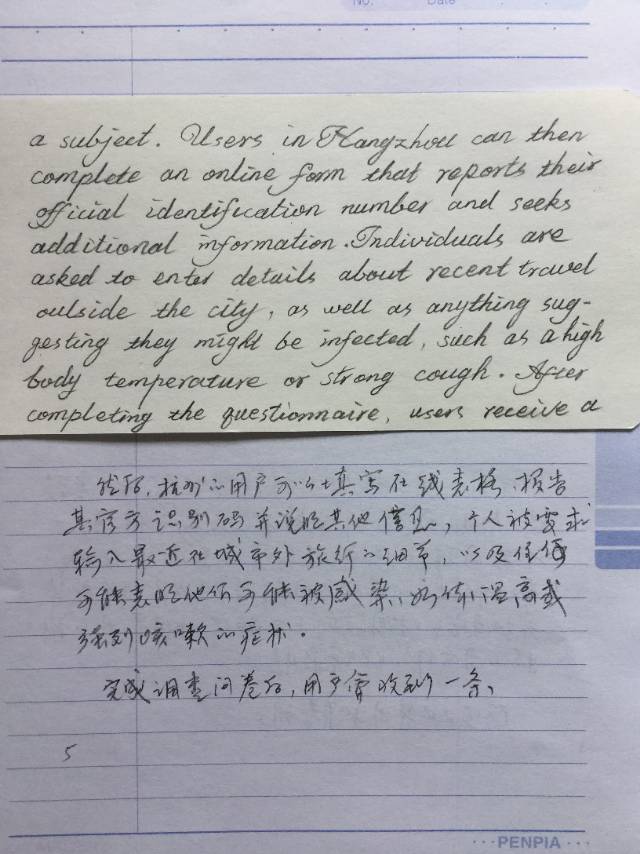 No. Date
a subject. Users in Hangzhou can then
complete an online form that reports their
official identification number and seeks
additional information. Individuals are
asked to enter details about recent travel
outside the city, as well as anything sug-
gesting they might be infected, such as a high
body temperature or strong cough. After
completing the questionnaire, users receive a
然后,杭州的用户可以填写在线表格,报告
其官方识别码并说明其他信息,个人被要求
输入最近在城市外旅行的细节,以及任何
可能表明他们可能被感染,如体温高或
强烈咳嗽的症状。
完成调查问卷后,用户会收到一条,
5
PENPIA